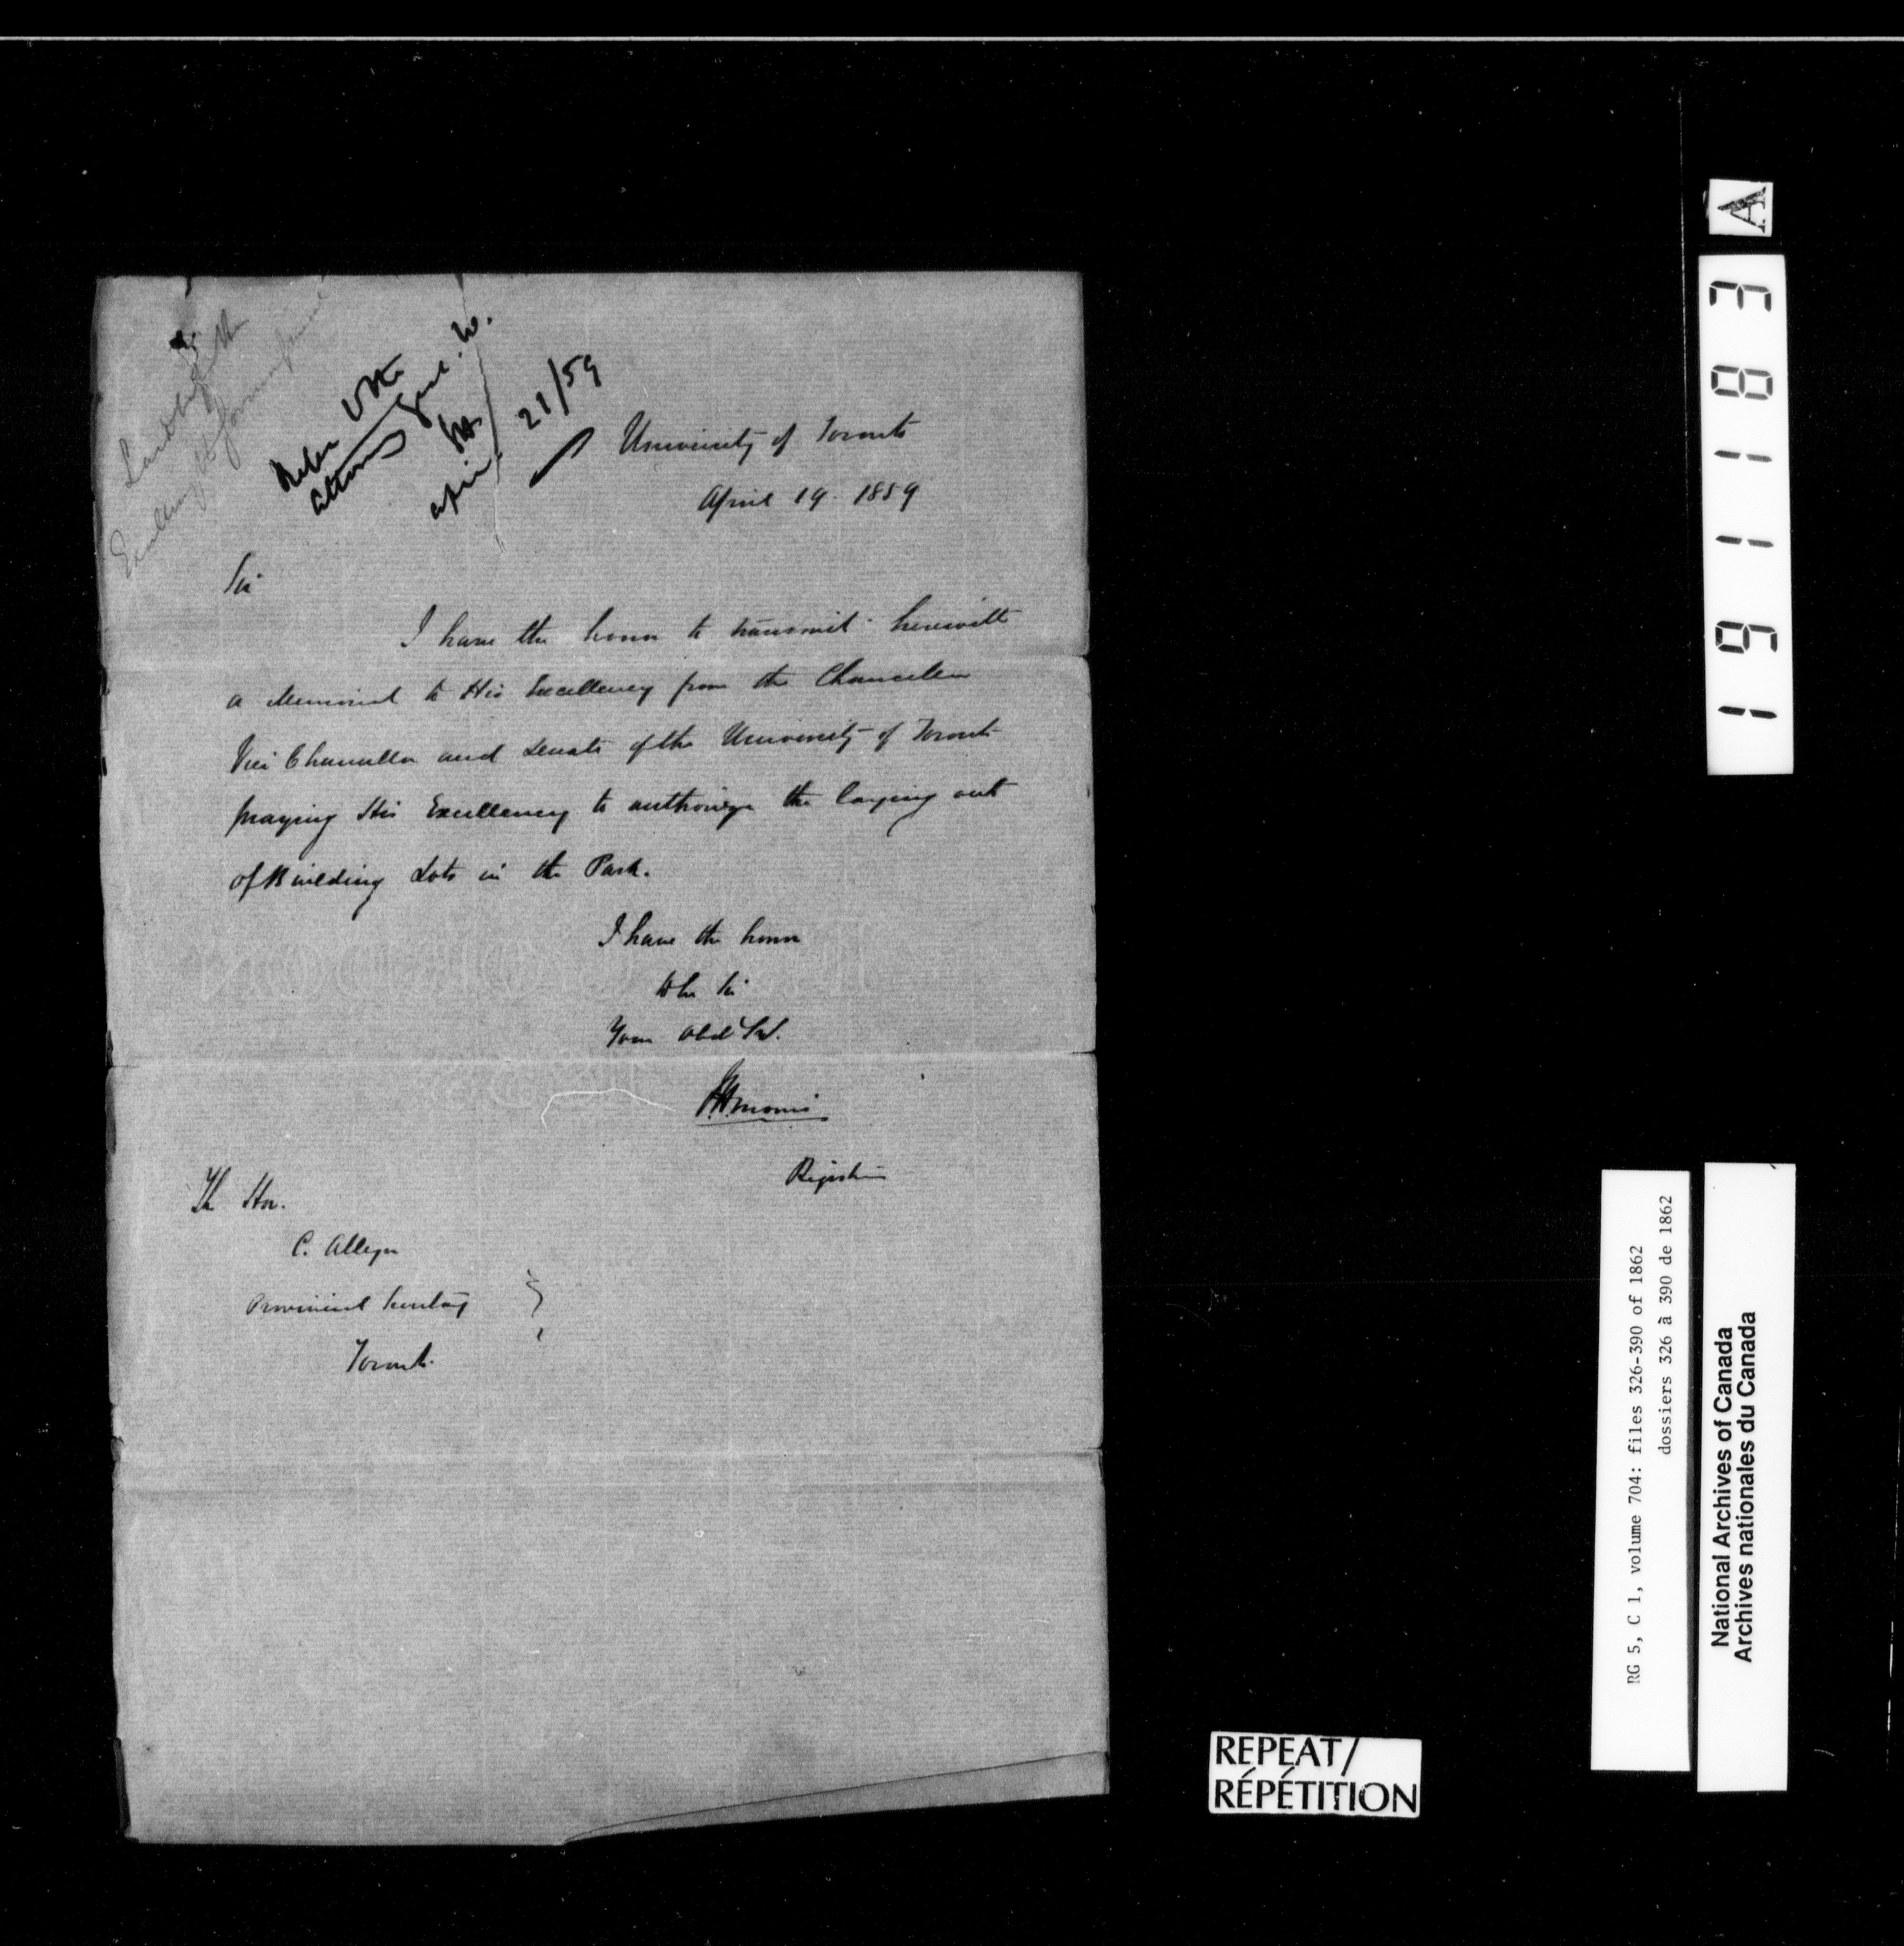 Refer to the
Attorney Genl. W.
April 21/59
University of Toronto
April 19. 1859
Sir
I have the honor to transmit herewith
a Memorial to His Excellency from the Chancellor
Vice Chancellor and Senate of the University of Toronto
praying His Excellency to authorize the laying out
of Building Lots in the Park.
I have the honor
to be Sir
Your Obdt Svt.
Morris
Registrar
The Hon.
C. Alleyn
Provincial Secretary
Toronto
A
191183
RG 5, C 1, volume 704: files 326-390 of 1862
dossiers 326 à 390 de 1862
National Archives of Canada
Archives nationales du Canada
REPEAT/
RÉPÉTITION